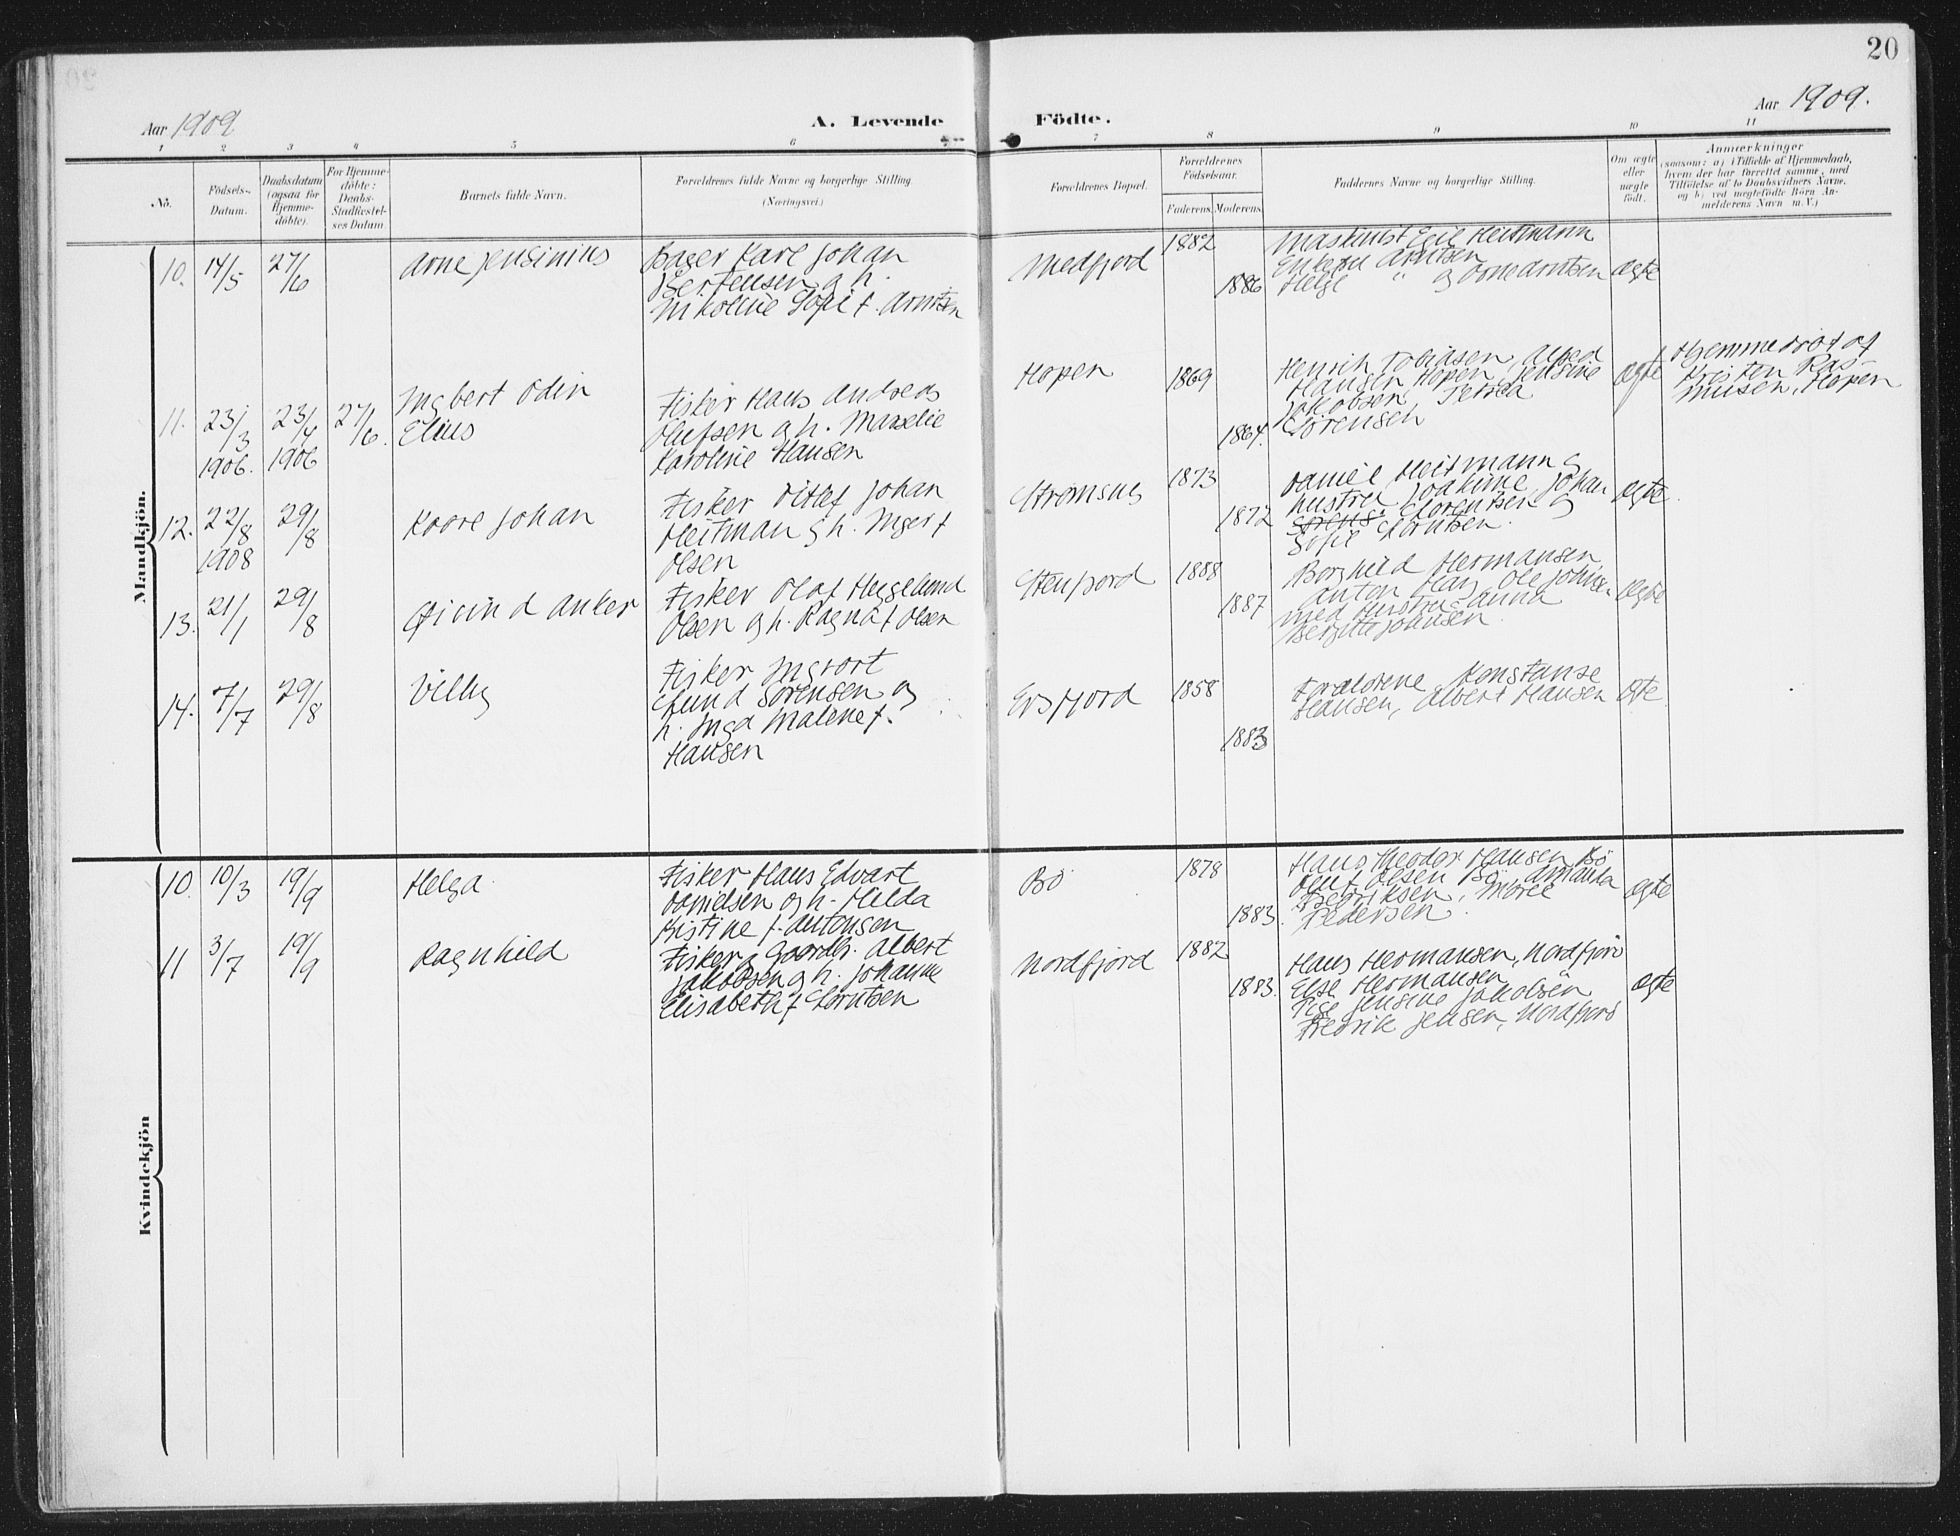 20
Aar 1909
A. Levende Födte.
Aar 1909.
1 2 3 4 5 6 7 8 9 10 11
No.
Födsels-Datum.
Daabsdatum (ogsaa for Hjemmedöbte).
For Hjemmedöbte: Daabs-Stadfæstelses Datum
Barnets fulde Navn.
Forældrenes fulde Navne og borgerlige Stilling. (Næringsvei.)
Forældrenes Bopæl.
Forældrenes Födselsaar.
Faderens. Moderens.
Faddernes Navne og borgerlige Stilling.
Om ægte eller uægte födt.
Anmærkninger
(saasom: a) i Tilfælde af Hjemmedaab, hvem der har forrettet samme, med Tilföielse af to Daabsvidners Navne, og b) ved uægtefödte Börn Anmelderens Navn m. V.)
Mandkjön.
10. 14/5 27/6 Arne Jensinius
Bager Karl Johan
Bertensen og h.
Nikoline Sofie f. Arntsen
Medfjord 1882 1886
Egil Heitmann
Enkefru Arntsen
Helge " og Arne Arntsen
ægte
11. 23/3 1906. 23/4 1906 27/6. Ingbert Odin
Elius
Fisker Hans Andreas
Olufsen og h. Marselie
Karoline Hansen
Hopen 1869 1864.
Henrik Tobiasen, Alfred
Hansen Hopen, Jensine
Jakobsen, Petrea
Sørensen
ægte
Hjemmedøbt af
Kristen Ras-
mussen, Hopen
12. 22/8 1908 29/8 Kaare Johan
Fisker Ditlef Johan
Heitman og h. Inger f
Olsen
Strømsnes 1873 1872
Daniel Heitmann og
hustru Joakime, Johan
Lorentsen og
Sofie Lorntsen.
ægte.
13. 21/1 29/8 Øivind Anker
Fisker Olaf Heggelund
Olsen og h. Ragna f Olsen
Stenfjord 1888 1887
Borghild Hermansen
Anton Hay Ole Johnsen
med Hustru Anna
Bergitte Johnsen.
ægte
14. 7/7 29/8 Villy
Fisker Ingvart
Efund Sørensen og
h. Inga Malene f.
Hansen
Ersfjord 1858 1883
Forældrene, Konstanse
Hansen, Albert Hansen
ægte
Kvindekjön
10. 10/3 19/9 Helga
Fisker Hans Edvart
Danielsen og h. Hilda
Kristine f. Antonsen
Bø 1878 1883.
Hans Theodor Hansen Bö
Oluf Olsen Bö, Amanda
Fredriksen,
Pedersen.
ægte
11 3/7 19/9 Ragnhild
Fisker og Gaardbr. Albert
Jakobsen og h. Johanne
Elisabeth f Lorntsen
Nordfjord 1882 1883.
Hans Hermansen, Nordfjord
Else Hermansen
Pige Jensine Jakobsen
Fredrik Jensen, Nordfjord
ægte